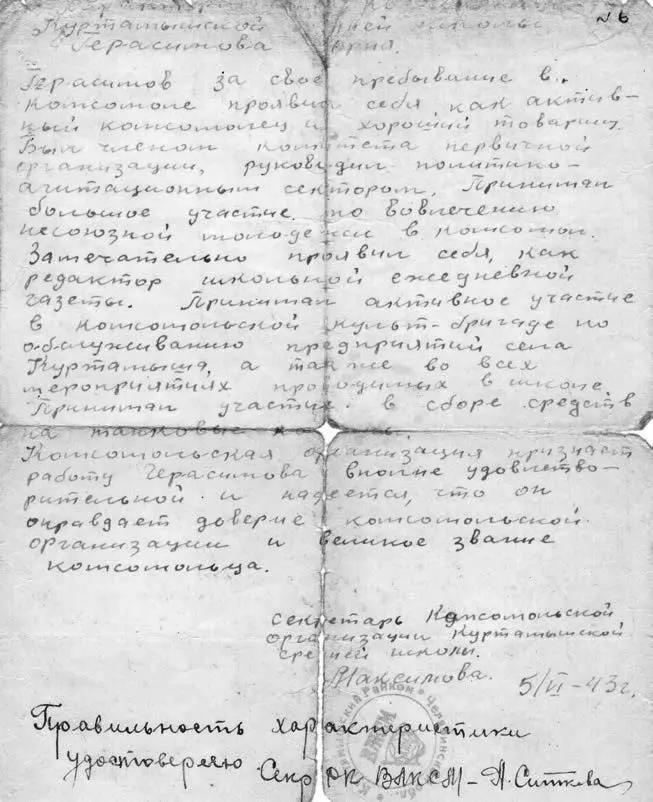 № 6
Куртамышской средней школы
Герасимова
Герасимов за свое пребывание в
комсомоле проявил себя как актив-
ный комсомолец и хороший товарищ.
Был членом комитета первичной
организации, руководил политико-
агитационным сектором. Принимал
большое участие по вовлечению
несоюзной молодежи в комсомол.
Замечательно проявил себя, как
редактор школьной ежедневной
газеты. Принимал активное участие
в комсомольской культ-бригаде по
обслуживанию предприятий села
Куртамыша, а также во всех
мероприятиях проводимых в школе.
Принимал участие в сборе средств
на танковые
Комсомольская организация признает
работу Герасимова вполне удовлетво-
рительной и надеется, что он
оправдает доверие комсомольской
организации и великое звание
комсомольца.
Секретарь Комсомольской
организации Куртамышской
средней школы.
Максимова.
5/VI-43г.
Правильность характеристики
удостоверяю Секр РК ВЛКСМ - А. Ситкова